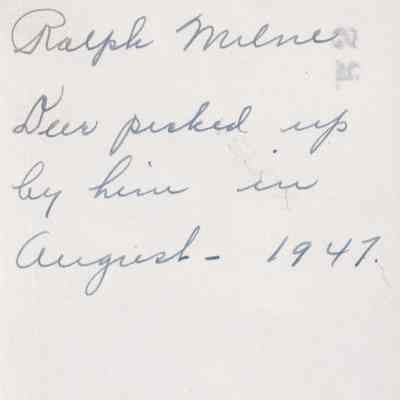 Ralph Milne
Deer picked up
by him in
August - 1947.